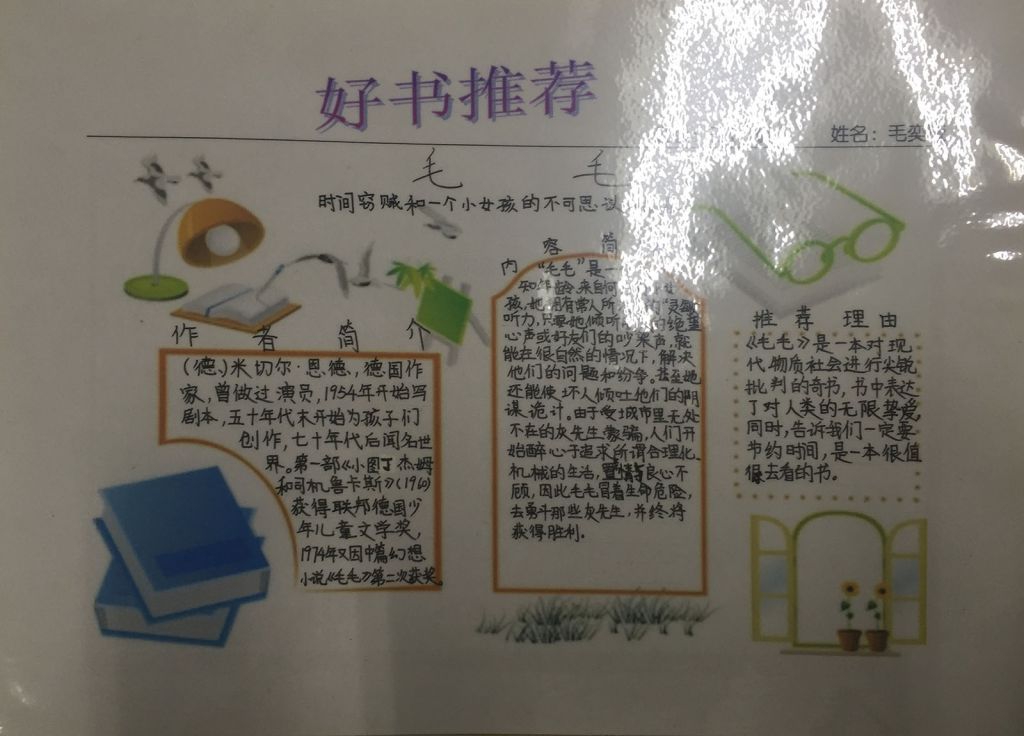 好书推荐
姓名：毛奕
毛 毛
时间窃贼和一个小女孩的不可思议
作者简介
(德)米切尔·恩德，德国作
家，曾做过演员，1954年开始写
剧本，五十年代末开始为孩子们
创作，七十年代后闻名世
界。第一部《小图丁杰姆
和司机鲁卡斯》(1960)
获得联邦德国少
年儿童文学奖，
1974年又因中篇幻想
小说《毛毛》第二次获奖。
内容简
“毛毛”是一
知年龄来自何
孩，她拥有常人所 的“灵敏”
听力，只要她倾听
心声或好友们的吵架声，就
能在很自然的情况下，解决
他们的问题和纷争。甚至她
还能使坏人倾吐他们的阴
谋诡计。由于受城市里无处
不在的灰先生蒙骗，人们开
始醉心于追求所谓合理化、
机械的生活，置情与良心不
顾，因此毛毛冒着生命危险，
去勇斗那些灰先生，并终将
获得胜利。
推荐理由
《毛毛》是一本对现
代物质社会进行尖锐
批判的奇书，书中表达
了对人类的无限挚爱。
同时，告诉我们一定要
节约时间，是一本很值
得去看的书。